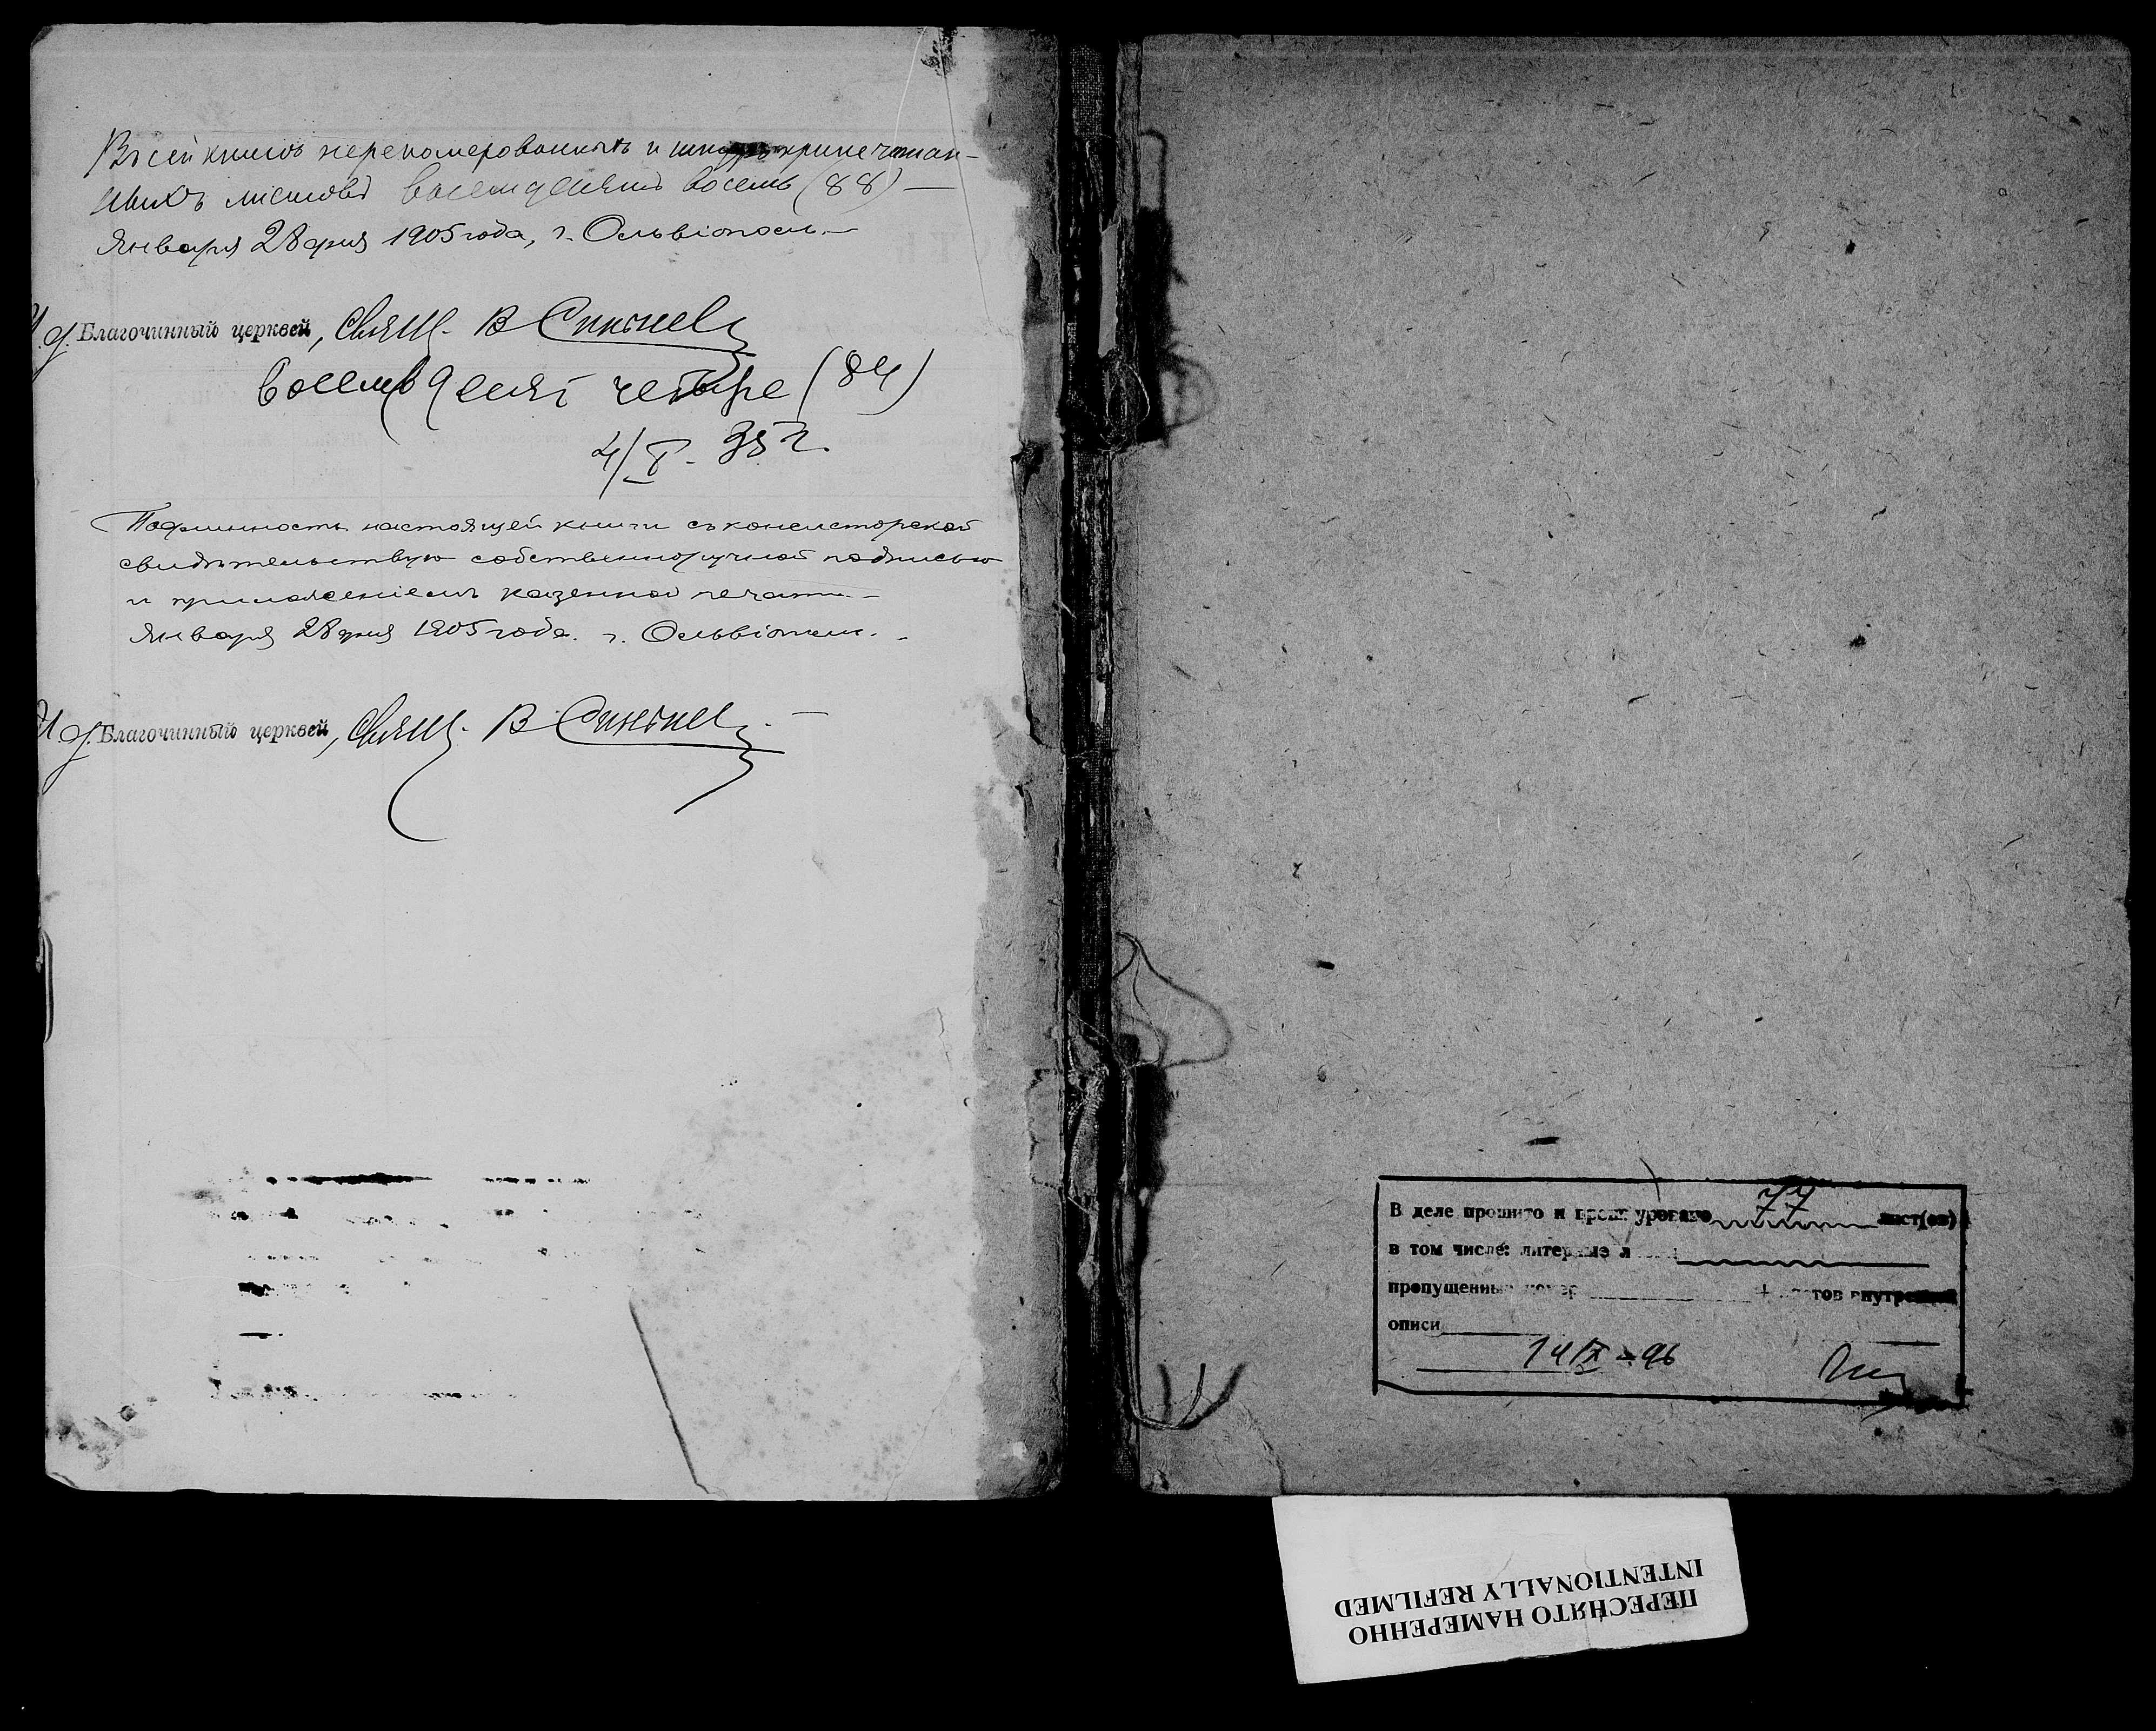 Въ сей книгѣ переномерованныхъ и припечатан-
ныхъ листовъ восемьдесятъ восемь (88) —
Января 28 дня 1905 года, г. Ольвіополь. —
И. д. Благочинный церквей, Свящ. В
восемьдесят четыре (84)
4/V - 35 г.
Подлинность настоящей книги съ консисторской
свидѣтельствую собственноручной подписью
и приложеніемъ казенной печати. —
Января 28 дня 1905 года. г. Ольвіополь. -
И. д. Благочинный церквей, Свящ. В —
В деле прошито и пронумеровано 77 лист(ов)
в том числе: литерные л
пропущенные номер + листов внутренней
описи
14/IX - 96
ПЕРЕСНЯТО НАМЕРЕННО
INTENTIONALLY REFILMED